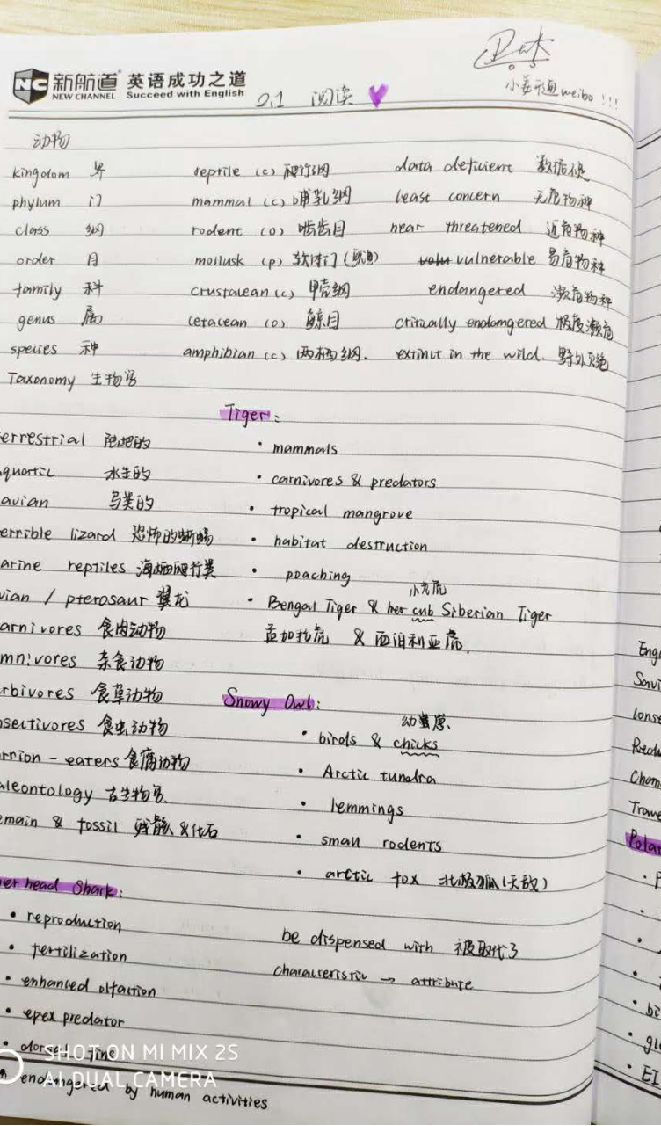 NC 新航道 英语成功之道
NEW CHANNEL Succeed with English
2.1 阅读
weibo !!!
动物
kingdom 界 reptile (c) 爬行纲 data deficient 数据缺
phylum 门 mammal (c) 哺乳纲 least concern 无危物种
class 纲 rodent (o) 啮齿目 near threatened 近危物种
order 目 mollusk (p) 软体门 vulnerable 易危物种
family 科 crustacean (c) 甲壳纲 endangered 濒危物种
genus 属 cetacean (o) 鲸目 critically endangered 极度濒危
species 种 amphibian (c) 两栖纲. extinct in the wild. 野外灭绝
Taxonomy 生物学
Tiger:
errestrial 陆地的
• mammals
quatic 水生的
• carnivores & predators
avian 鸟类的
• tropical mangrove
errible lizard 恐怖的蜥蜴
• habitat destruction
arine reptiles 海洋爬行类
• poaching
小老虎
vian / pterosaur 翼龙
• Bengal Tiger & her cub Siberian Tiger
arnivores 食肉动物
孟加拉虎 & 西伯利亚虎
mnivores 杂食动物
rbivores 食草动物
Snowy Owl:
sectivores 食虫动物
• birds & chicks
rrion - eaters 食腐动物
• Arctic tundra
aleontology 古生物学
• lemmings
emain & fossil 残骸 & 化石
• small rodents
• arctic fox 北极狐(天敌)
er head Shark:
• reproduction
be dispensed with 被取代了
• fertilization
characteristic → attribute
• enhanced olfaction
• epex predator
• dorsal fine
• endangered by human activities
SHOT ON MI MIX 2S
AI DUAL CAMERA
Eng
Redu
Chem
Trave
Polar
• bi
• gl
• EI